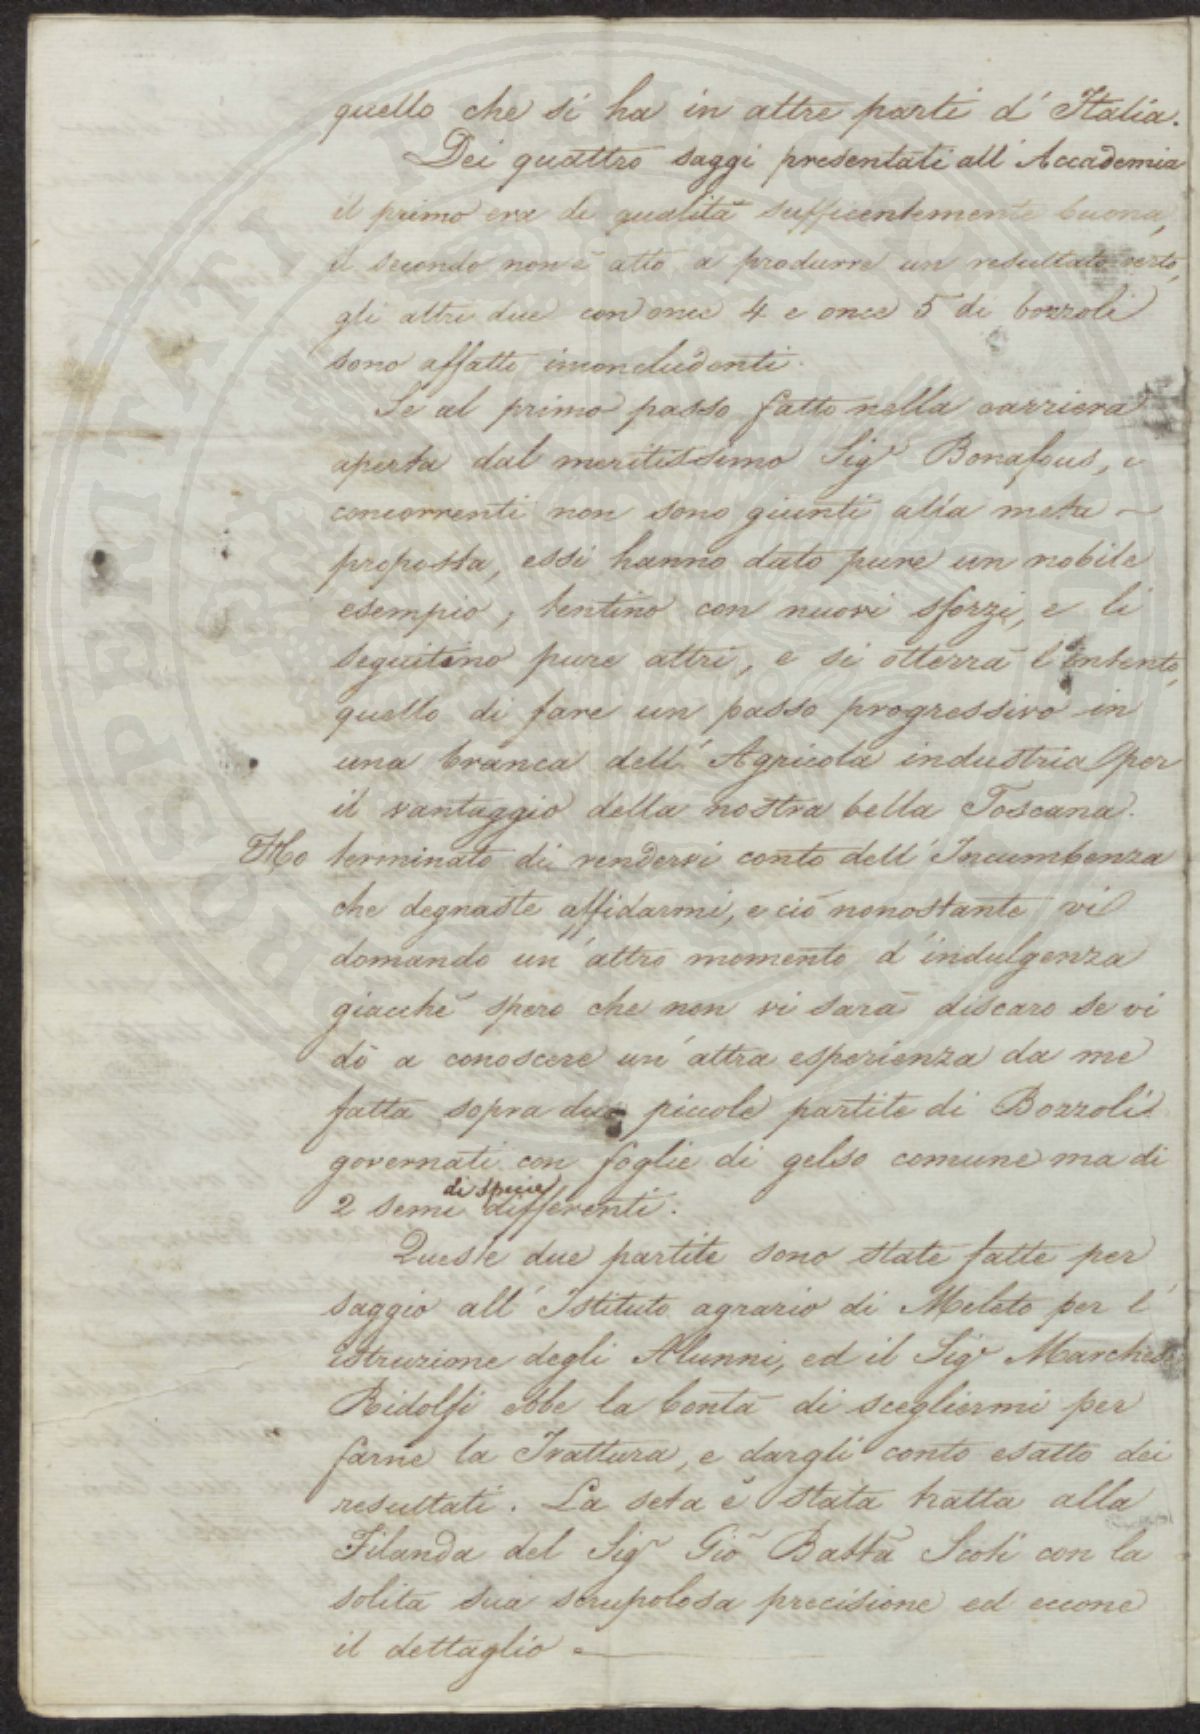 quello che si ha in altre parti d'Italia.
Dei quattro saggi presentati all'Accademia
il primo era di qualità sufficentemente buona,
il secondo non è atto a produrre un resultato certo,
gli altri due con once 4 e once 5 di bozzoli
sono affatto inconcludenti.
Se al primo passo fatto nella carriera
aperta dal meritissimo Sigr Bonafous, i
concorrenti non sono giunti alla meta
proposta, essi hanno dato pure un nobile
esempio, tentino con nuovi sforzi, e li
seguitino pure altri, e si otterrà l'intento,
quello di fare un passo progressivo in
una branca dell'Agricola industria per
il vantaggio della nostra bella Toscana.
Ho terminato di rendervi conto dell'Incumbenza
che degnaste affidarmi, e ciò nonostante vi
domando un'altro momento d'indulgenza
giacchè spero che non vi sarà discaro se vi
dò a conoscere un'altra esperienza da me
fatta sopra due piccole partite di Bozzoli
governati con foglie di gelso comune ma di
2 semi di specie differenti.
Queste due partite sono state fatte per
saggio all'Istituto agrario di Meleto per l'
istruzione degli Alunni, ed il Sigr Marchese
Ridolfi ebbe la bontà di scegliermi per
farne la Trattura, e dargli conto esatto dei
resultati. La seta è stata tratta alla
Filanda del Sigr Gio Batta Scoti con la
solita sua scrupolosa precisione ed eccone
il dettaglio
PERITATI PUBLICAE
PROSPERITATI